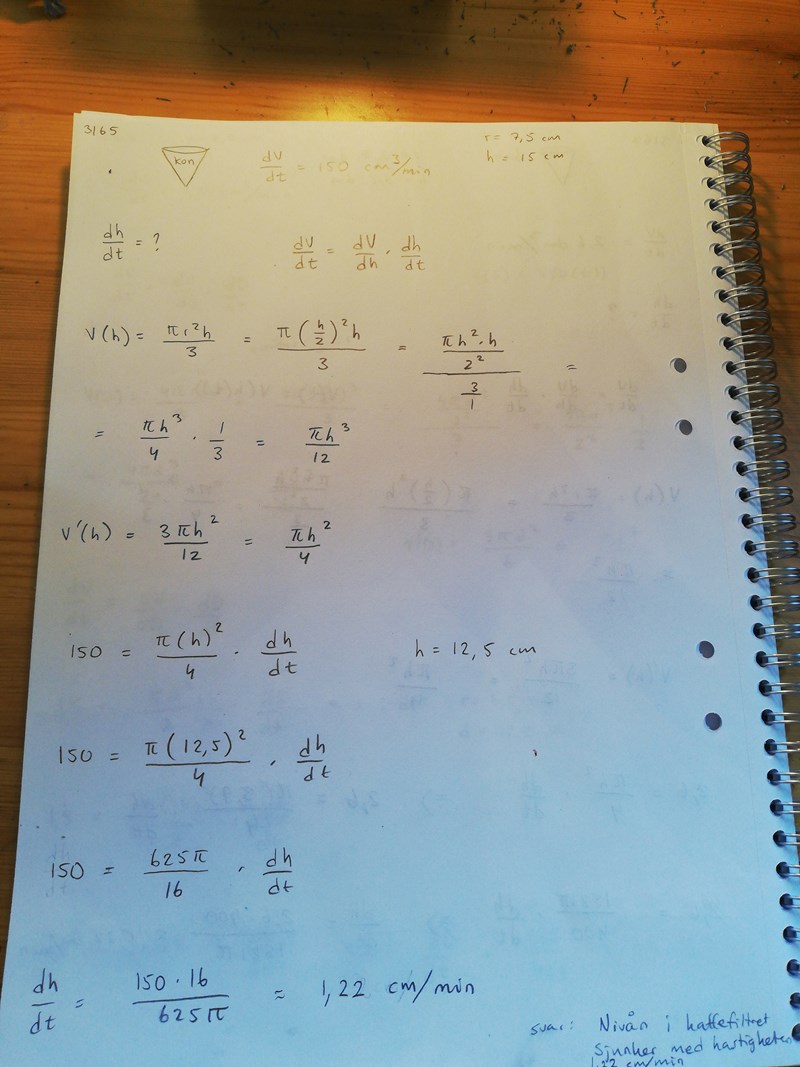 3165
kon
dV/dt = 150 cm³/min
r = 7,5 cm
h = 15 cm
dh/dt = ?
dV/dt = dV/dh · dh/dt
V(h) = πr²h/3 = π(h/2)²h/3 = (πh²·h/2²)/(3/1) =
= πh³/4 · 1/3 = πh³/12
V'(h) = 3πh²/12 = πh²/4
150 = π(h)²/4 · dh/dt
h = 12,5 cm
150 = π(12,5)²/4 · dh/dt
150 = 625π/16 · dh/dt
dh/dt = 150·16/625π = 1,22 cm/min
svar: Nivån i kaffefiltret
sjunker med hastigheten
1,22 cm/min